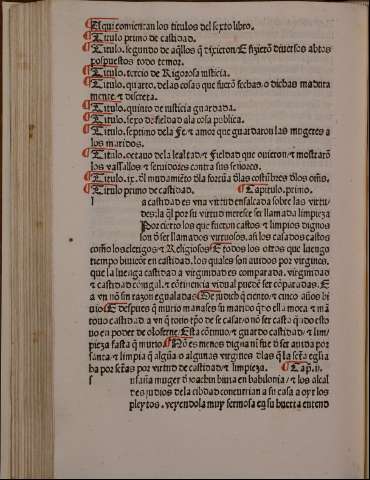 ¶Aqui comiençan los titulos del sexto libro.
¶Titulo primo de castidad.
¶Titulo. segundo de aq̃llos q̃ dixieron/E fizierõ diuersos abtos
pospuestos todo temor.
¶Titulo. tercio de Rigorosa iusticia.
¶Titulo. quarto. delas cosas que fuerõ fechas/o dichas madura
mente/⁊ discreta.
¶Titulo. quinto de iusticia guardada.
¶Titulo. sexo de fieldad ala cosa publica.
¶Titulo. septimo dela Fe/⁊ amor que guardaron las mugeres a
los maridos.
¶Titulo. octauo dela lealtad/⁊ Fieldad que ouieron/⁊ mostrarõ
los vassallos/⁊ seruidores contra sus señores.
¶Titulo. ix. dl mudamiẽto dla fortũa/dlas costũbres dlos omẽs.
¶Titulo primo de castidad. ¶Capitulo. primo.
l a castidad es vna virtud ensalcada sobre las virtu
des: la q̃l por su virtud merese ser llamada limpieza
Por cierto los que fueron castos/⁊ limpios dignos
son d̃ ser llamados virtuosos. asi los casados castos
como los clerigos/⁊ Religiosos/E todos los otros que luengo
tiempo biuierõ en castidad. los quales son auidos por virgines.
que la luenga castidad a virginidad es comparada. virginidad
⁊ castidad cõiugal. ⁊ cõtinencia vidual puedẽ ser cõparadas. E
a vn nõ sin razon egualadas ¶De iudich q̃ ciento/⁊ cinco años bi
uio/E despues q̃ murio manases su marido q̃do ella moça/⁊ mã
touo castidad a vn q̃ touo tpõ de se casar/o nõ ser casta q̃ido esto
uo en poder de oloferne/Esta cõtinuo/⁊ guardo castidad/⁊ lim
pieza fasta q̃ murio. ¶No es menos digna nĩ fue d̃ ser auida por
santa/⁊ limpia q̃ algũa o algunas virgines dlas q̃ la scã eglia
ba por scãs por virtud de castidad/⁊ limpieza. ¶Cap̃. ij.
s usaña muger d̃ joachin biuia en babilonia/⁊ los alcal
des judios de la cibdad concurrian a su casa a oyr los
pleytos. veyendola muy fermosa en su huerta entend